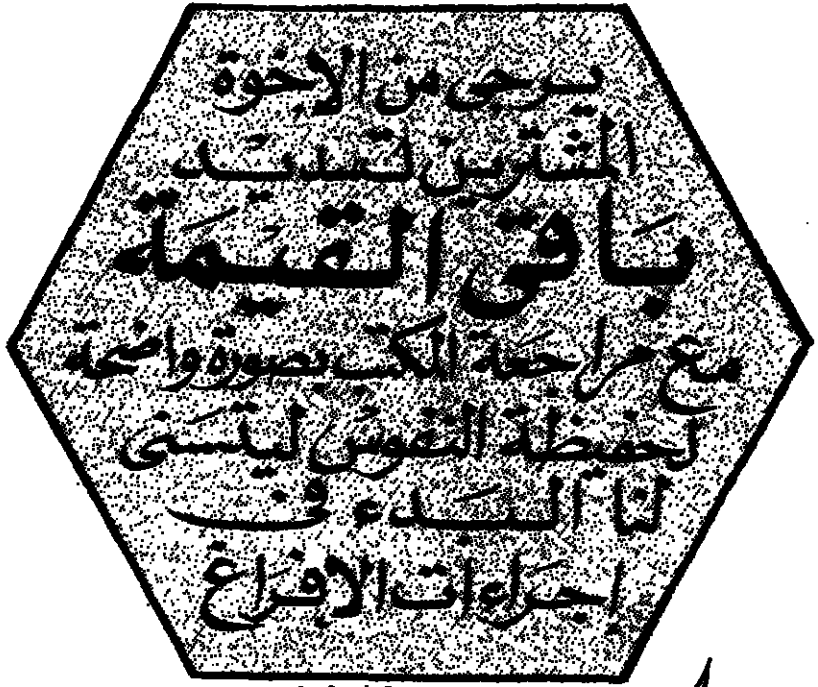 يرجى من الإخوة
المشترين تسديد
باقي القيمة
مع مراجعة المكتب بصورة واضحة
لحفيظة النفوس ليتسنى
لنا البدء في
إجراءات الافراغ